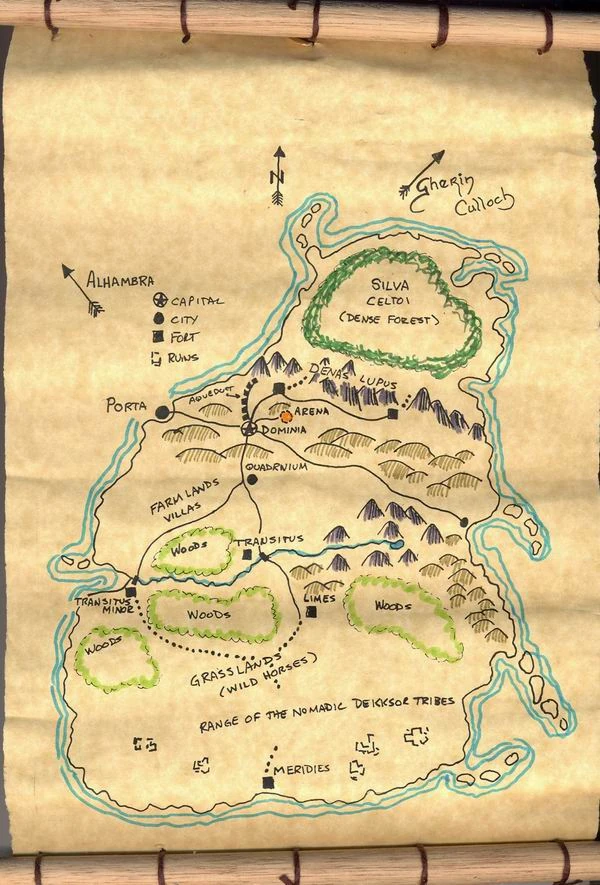 N
Gherin
Culloch
ALHAMBRA
CAPITAL
CITY
FORT
RUINS
SILVA
CELTOI
(DENSE FOREST)
DENAS LUPUS
AQUEDUCT
PORTA
ARENA
DOMINIA
QUADRIVIUM
FARMLANDS
VILLAS
WOODS
TRANSITUS
TRANSITUS
MINOR
WOODS
LIMES
WOODS
WOODS
GRASSLANDS
(WILD HORSES)
RANGE OF THE NOMADIC DEIKKSOR TRIBES
MERIDIES